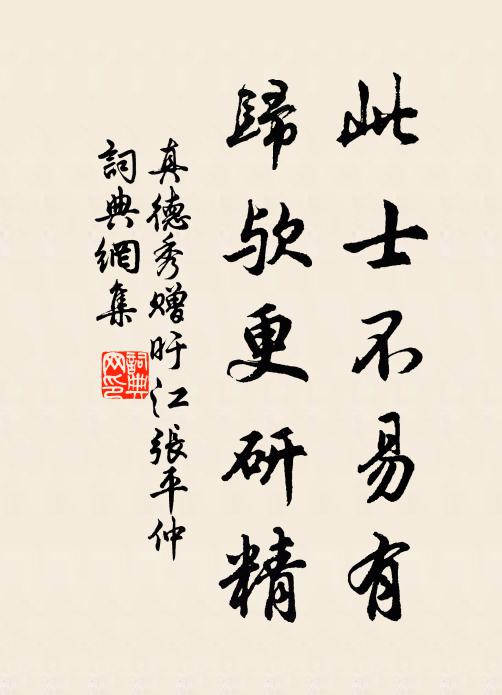 此士不易有
歸欤更研精
真德秀贈旴江張平仲
詞典網集
詞典网印